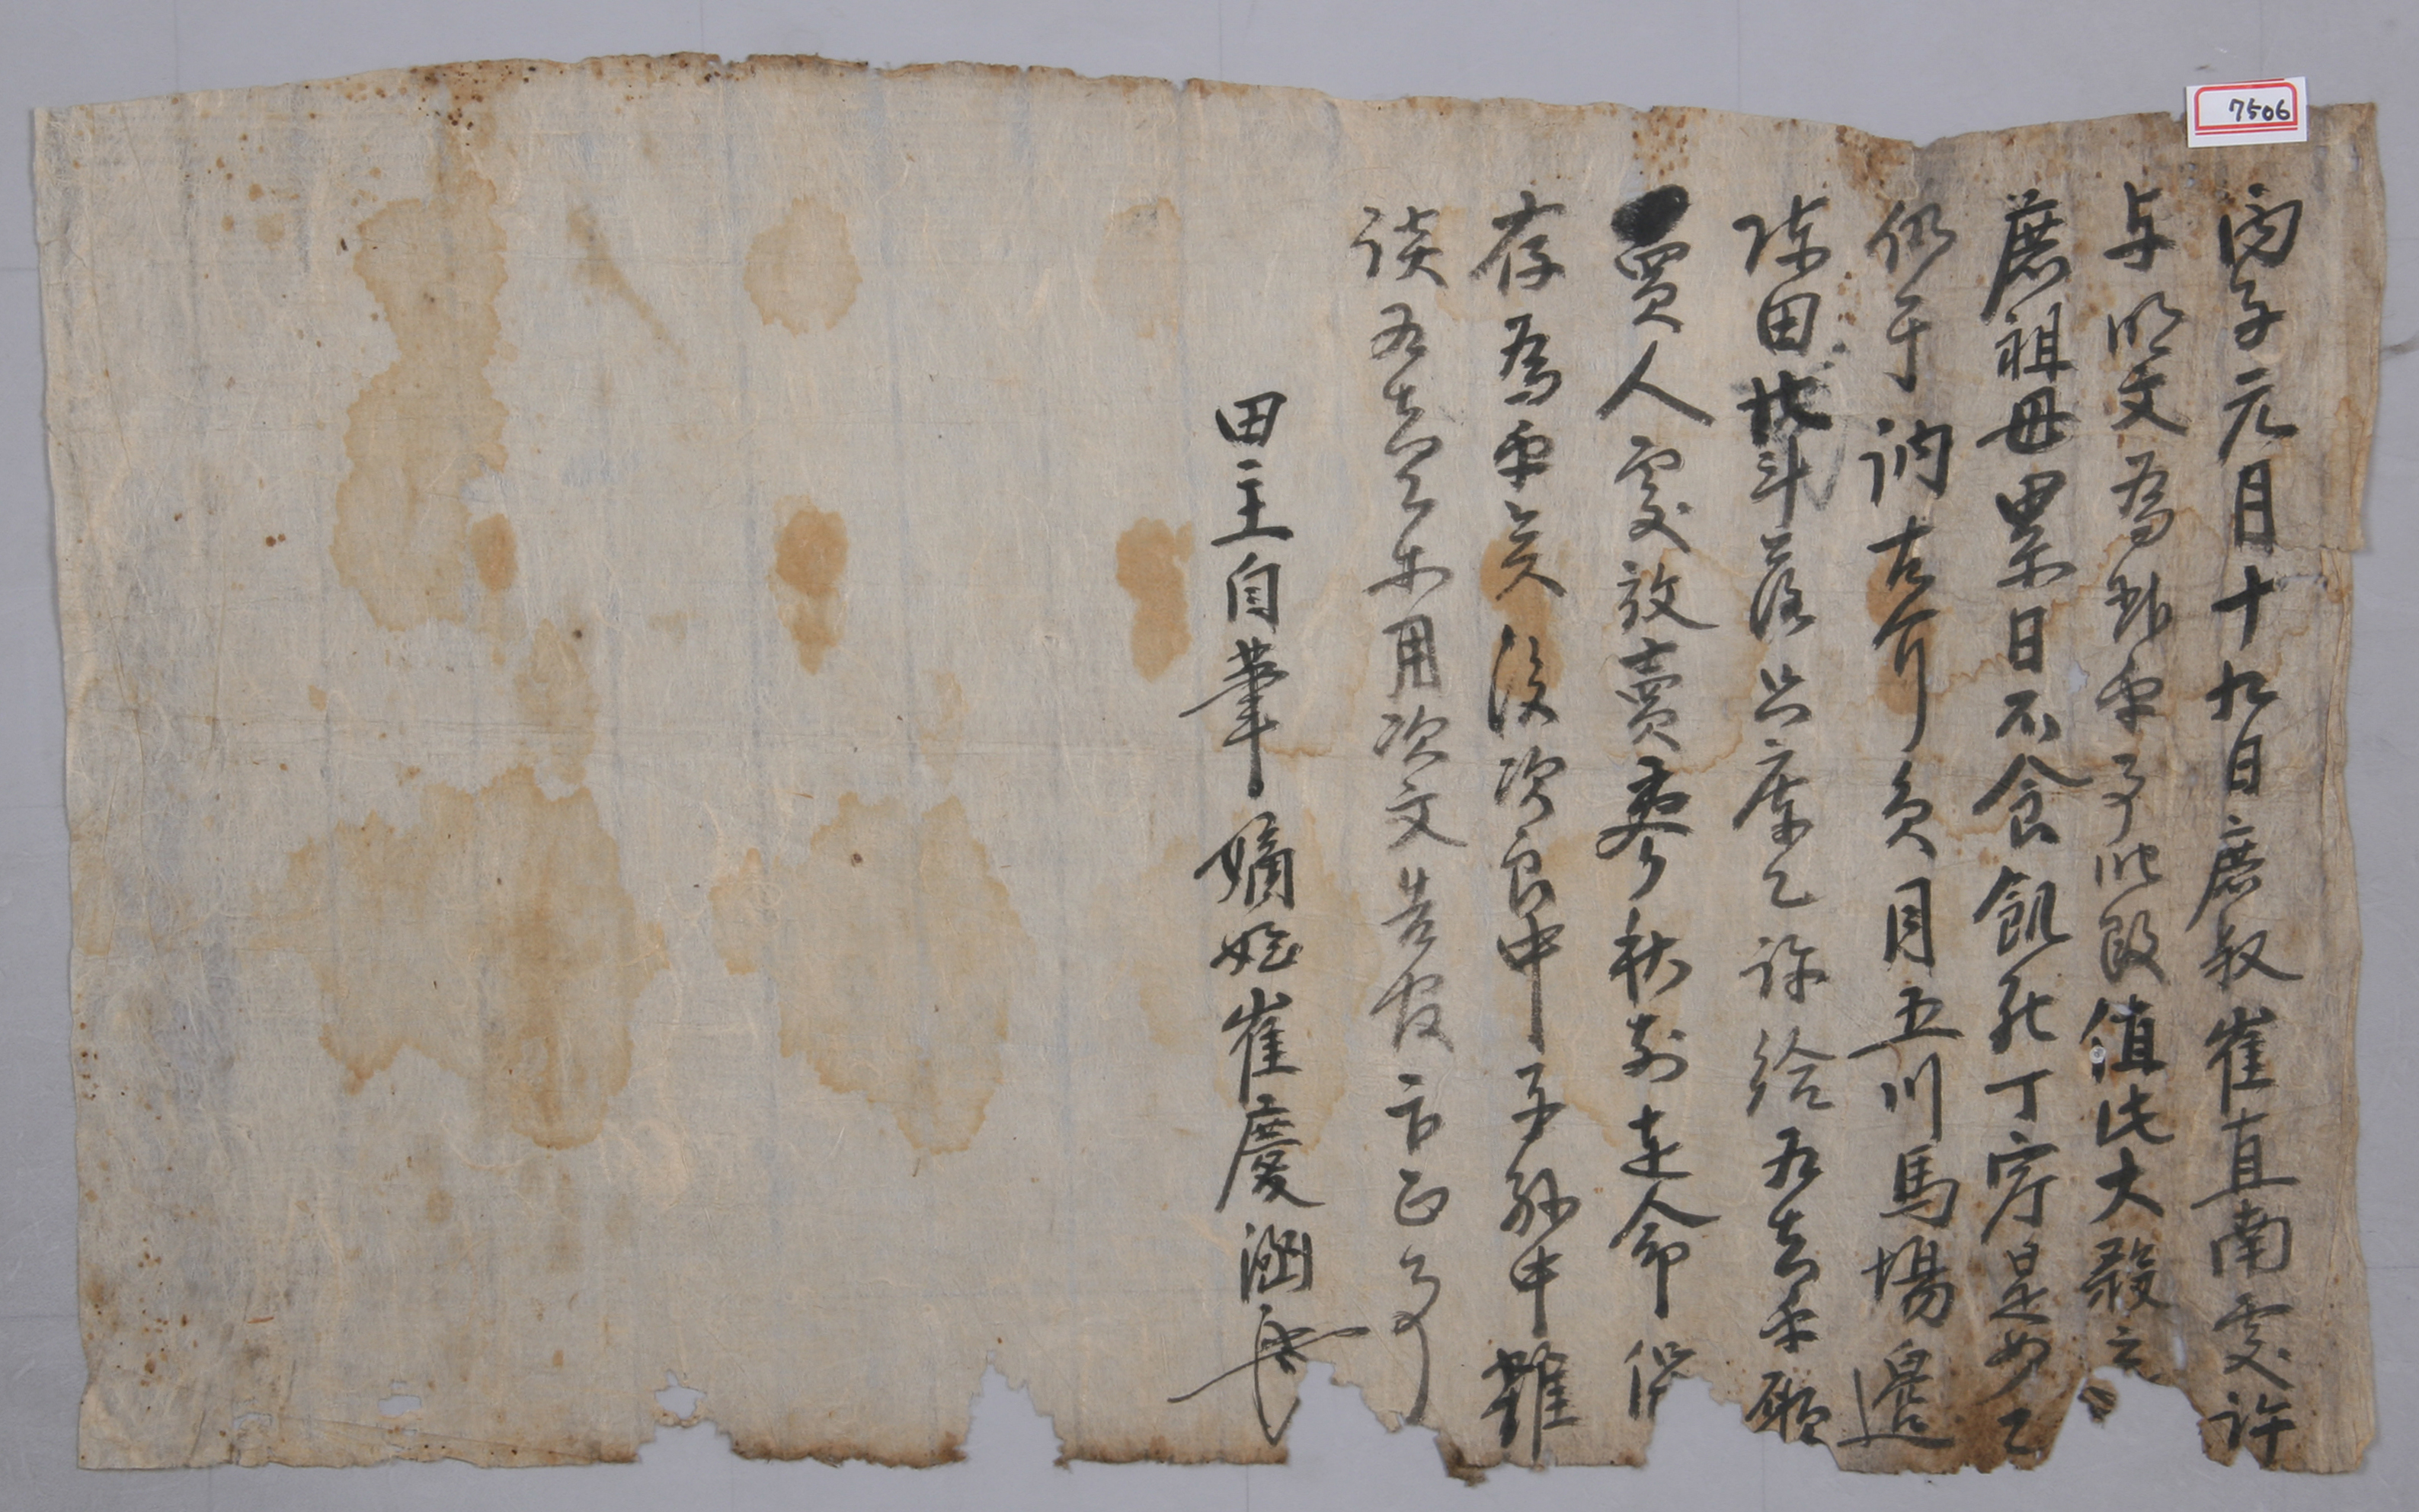 7506
丙子元月十九日庶叔崔直南處許
与明文爲臥乎事叱段値此大殺
庶祖母累日不食飢死丁寧是如乙
仍于訥古介員目五川馬場邊
陳田 斗落㐣庫乙許給爲去乎願
買人處放賣 秋前延命保
存爲乎矣後次良中子孫中雜
談爲去等用次文 官卞正事
田主自筆嫡姪崔慶涵